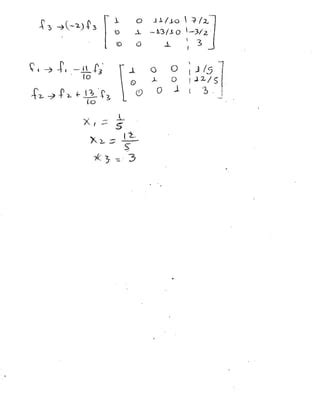 f₃ → (-2) f₃ [ 1 0 11/10 | 7/2
0 1 -13/10 | -3/2
0 0 1 | 3 ]
f₁ → f₁ - 11/10 f₃ [ 1 0 0 | 1/5
0 1 0 | 12/5
f₂ → f₂ + 13/10 f₃ 0 0 1 | 3 ]
x₁ = 1/5
x₂ = 12/5
x₃ = 3